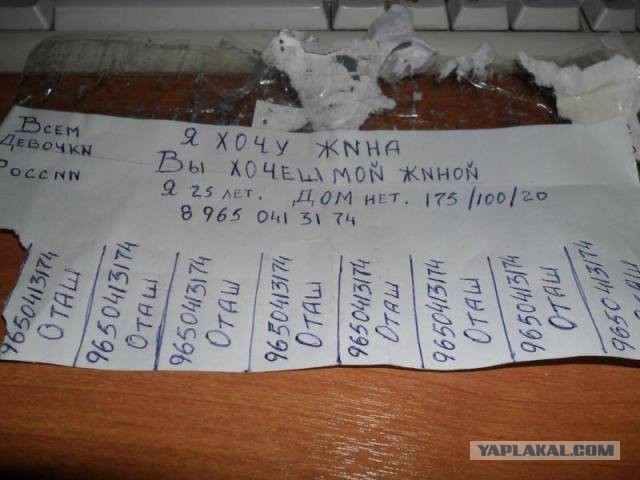 Всем
девочки
России
Я хочу жина
Вы хочеш мой жиной
Я 25 лет. Дом нет. 175/100/20
8 965 041 31 74
9650413174
Оташ
9650413174
Оташ
9650413174
Оташ
9650413174
Оташ
9650413174
Оташ
9650413174
Оташ
9650413174
Оташ
9650413174
YAPLAKAL.COM